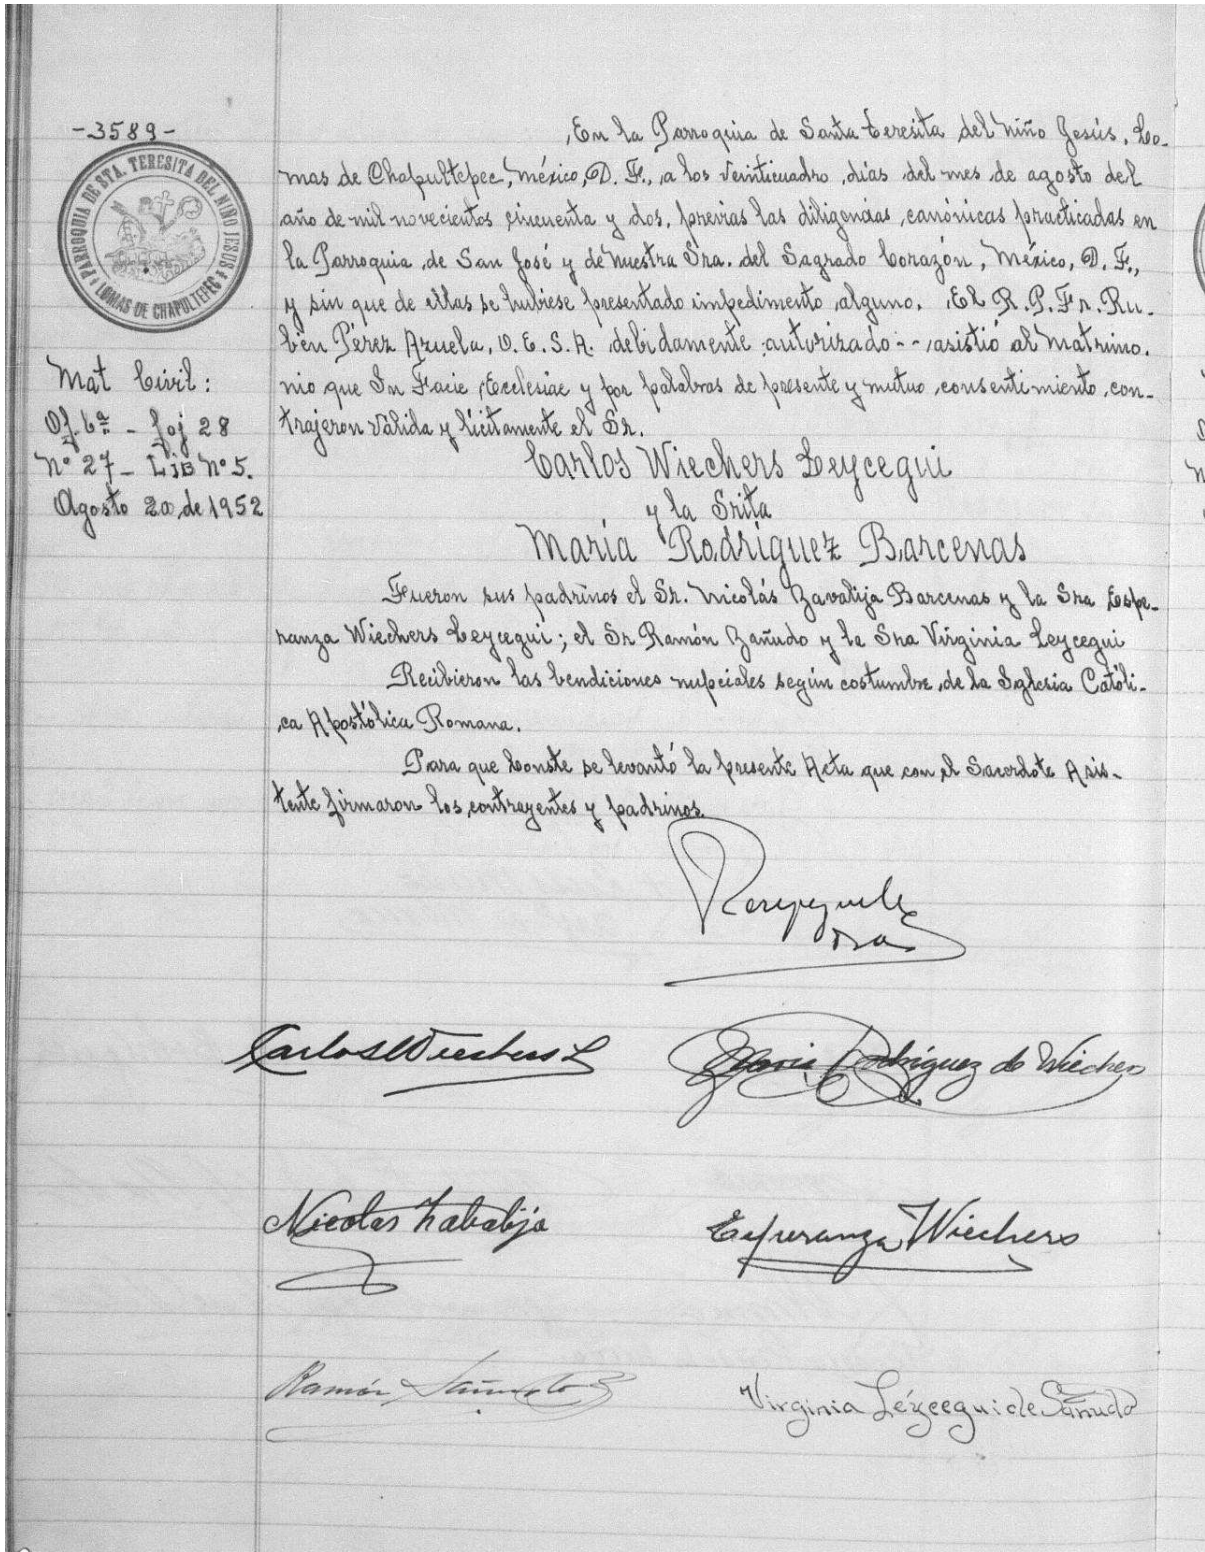 -3589-
PARROQUIA DE STA. TERESITA DEL NIÑO JESUS
LOMAS DE CHAPULTEPEC
Mat Civil:
Of. 6ª - foj 28
Nº 27 - LIB Nº 5.
Agosto 20, de 1952
En la Parroquia de Santa Teresita del Niño Jesús, Lo-
mas de Chapultepec, México, D. F., a los veinticuadro días del mes de agosto del
año de mil novecientos cincuenta y dos, previas las diligencias canónicas practicadas en
la Parroquia de San José y de Nuestra Sra. del Sagrado Corazón, México, D. F.,
y sin que de ellas se hubiese presentado impedimento alguno. El R. P. Fr. Ru-
bén Pérez Azuela, O. E. S. A. debidamente autorizado -- asistió al Matrimo-
nio que In Facie Ecclesiae y por palabras de presente y mutuo consentimiento, con-
trajeron válida y lícitamente el Sr.
Carlos Wiechers Leycegui
y la Srita
María Rodríguez Barcenas
Fueron sus padrinos el Sr. Nicolás Zavalija Barcenas y la Sra Espe-
ranza Wiechers Leycegui; el Sr Ramón Zañudo y la Sra Virginia Leycegui
Recibieron las bendiciones nupciales según costumbre de la Iglesia Católi-
ca Apostólica Romana.
Para que conste se levantó la presente Acta que con el Sacerdote Asis-
tente firmaron los contrayentes y padrinos.
Carlos Wiechers L
María Rodríguez de Wiechers
Nicolas Zabalija
Esperanza Wiechers
Ramón Sañudo
Virginia Leycegui de Sañudo